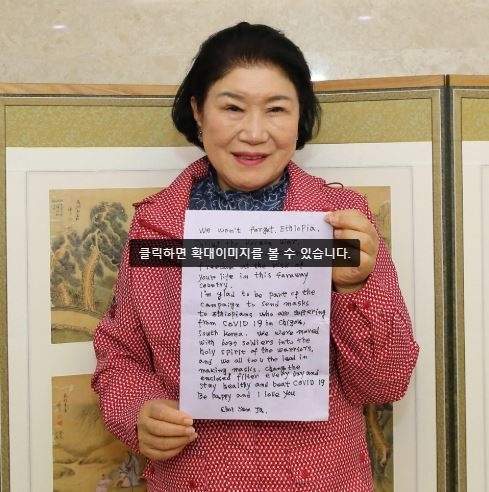 We won't forget, Ethiopia.
the Korean War,
클릭하면 확대이미지를 볼 수 있습니다.
your life in this faraway
country.
I'm glad to be part of the
campaign to send masks
to Ethiopians who are suffering
from COVID 19 in
South Korea. We were moved
with soldiers into the
holy spirit of the warriors,
and we all took the lead in
making masks. Change the
enclosed filter every day and
stay healthy and beat COVID 19
Be happy and I love you